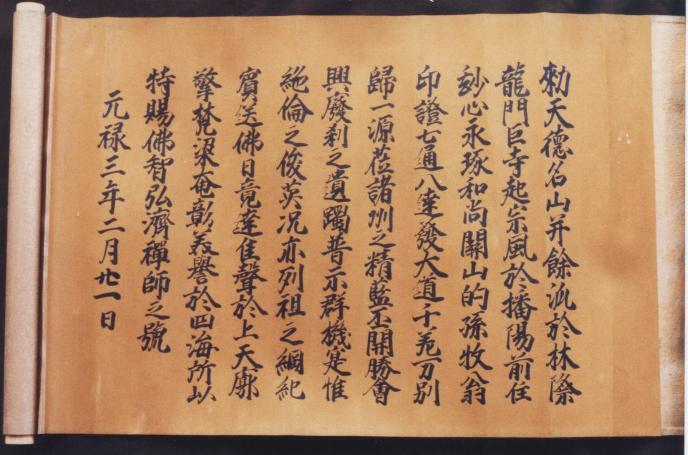 勅天德名山并餘派於林際
龍門巨寺起宗風於播陽前住
妙心永琢和尚關山的孫牧翁
印證七通八達發大道十差万別
歸一源莅諸州之精藍丕開勝會
興廢刹之遺躅普示群機寔惟
絶倫之俊英况亦列祖之綱紀
賓送佛日竟達佳聲於上天廓
擎梵梁奄彰美譽於四海所以
特賜佛智弘濟禪師之號
元禄三年二月廿一日